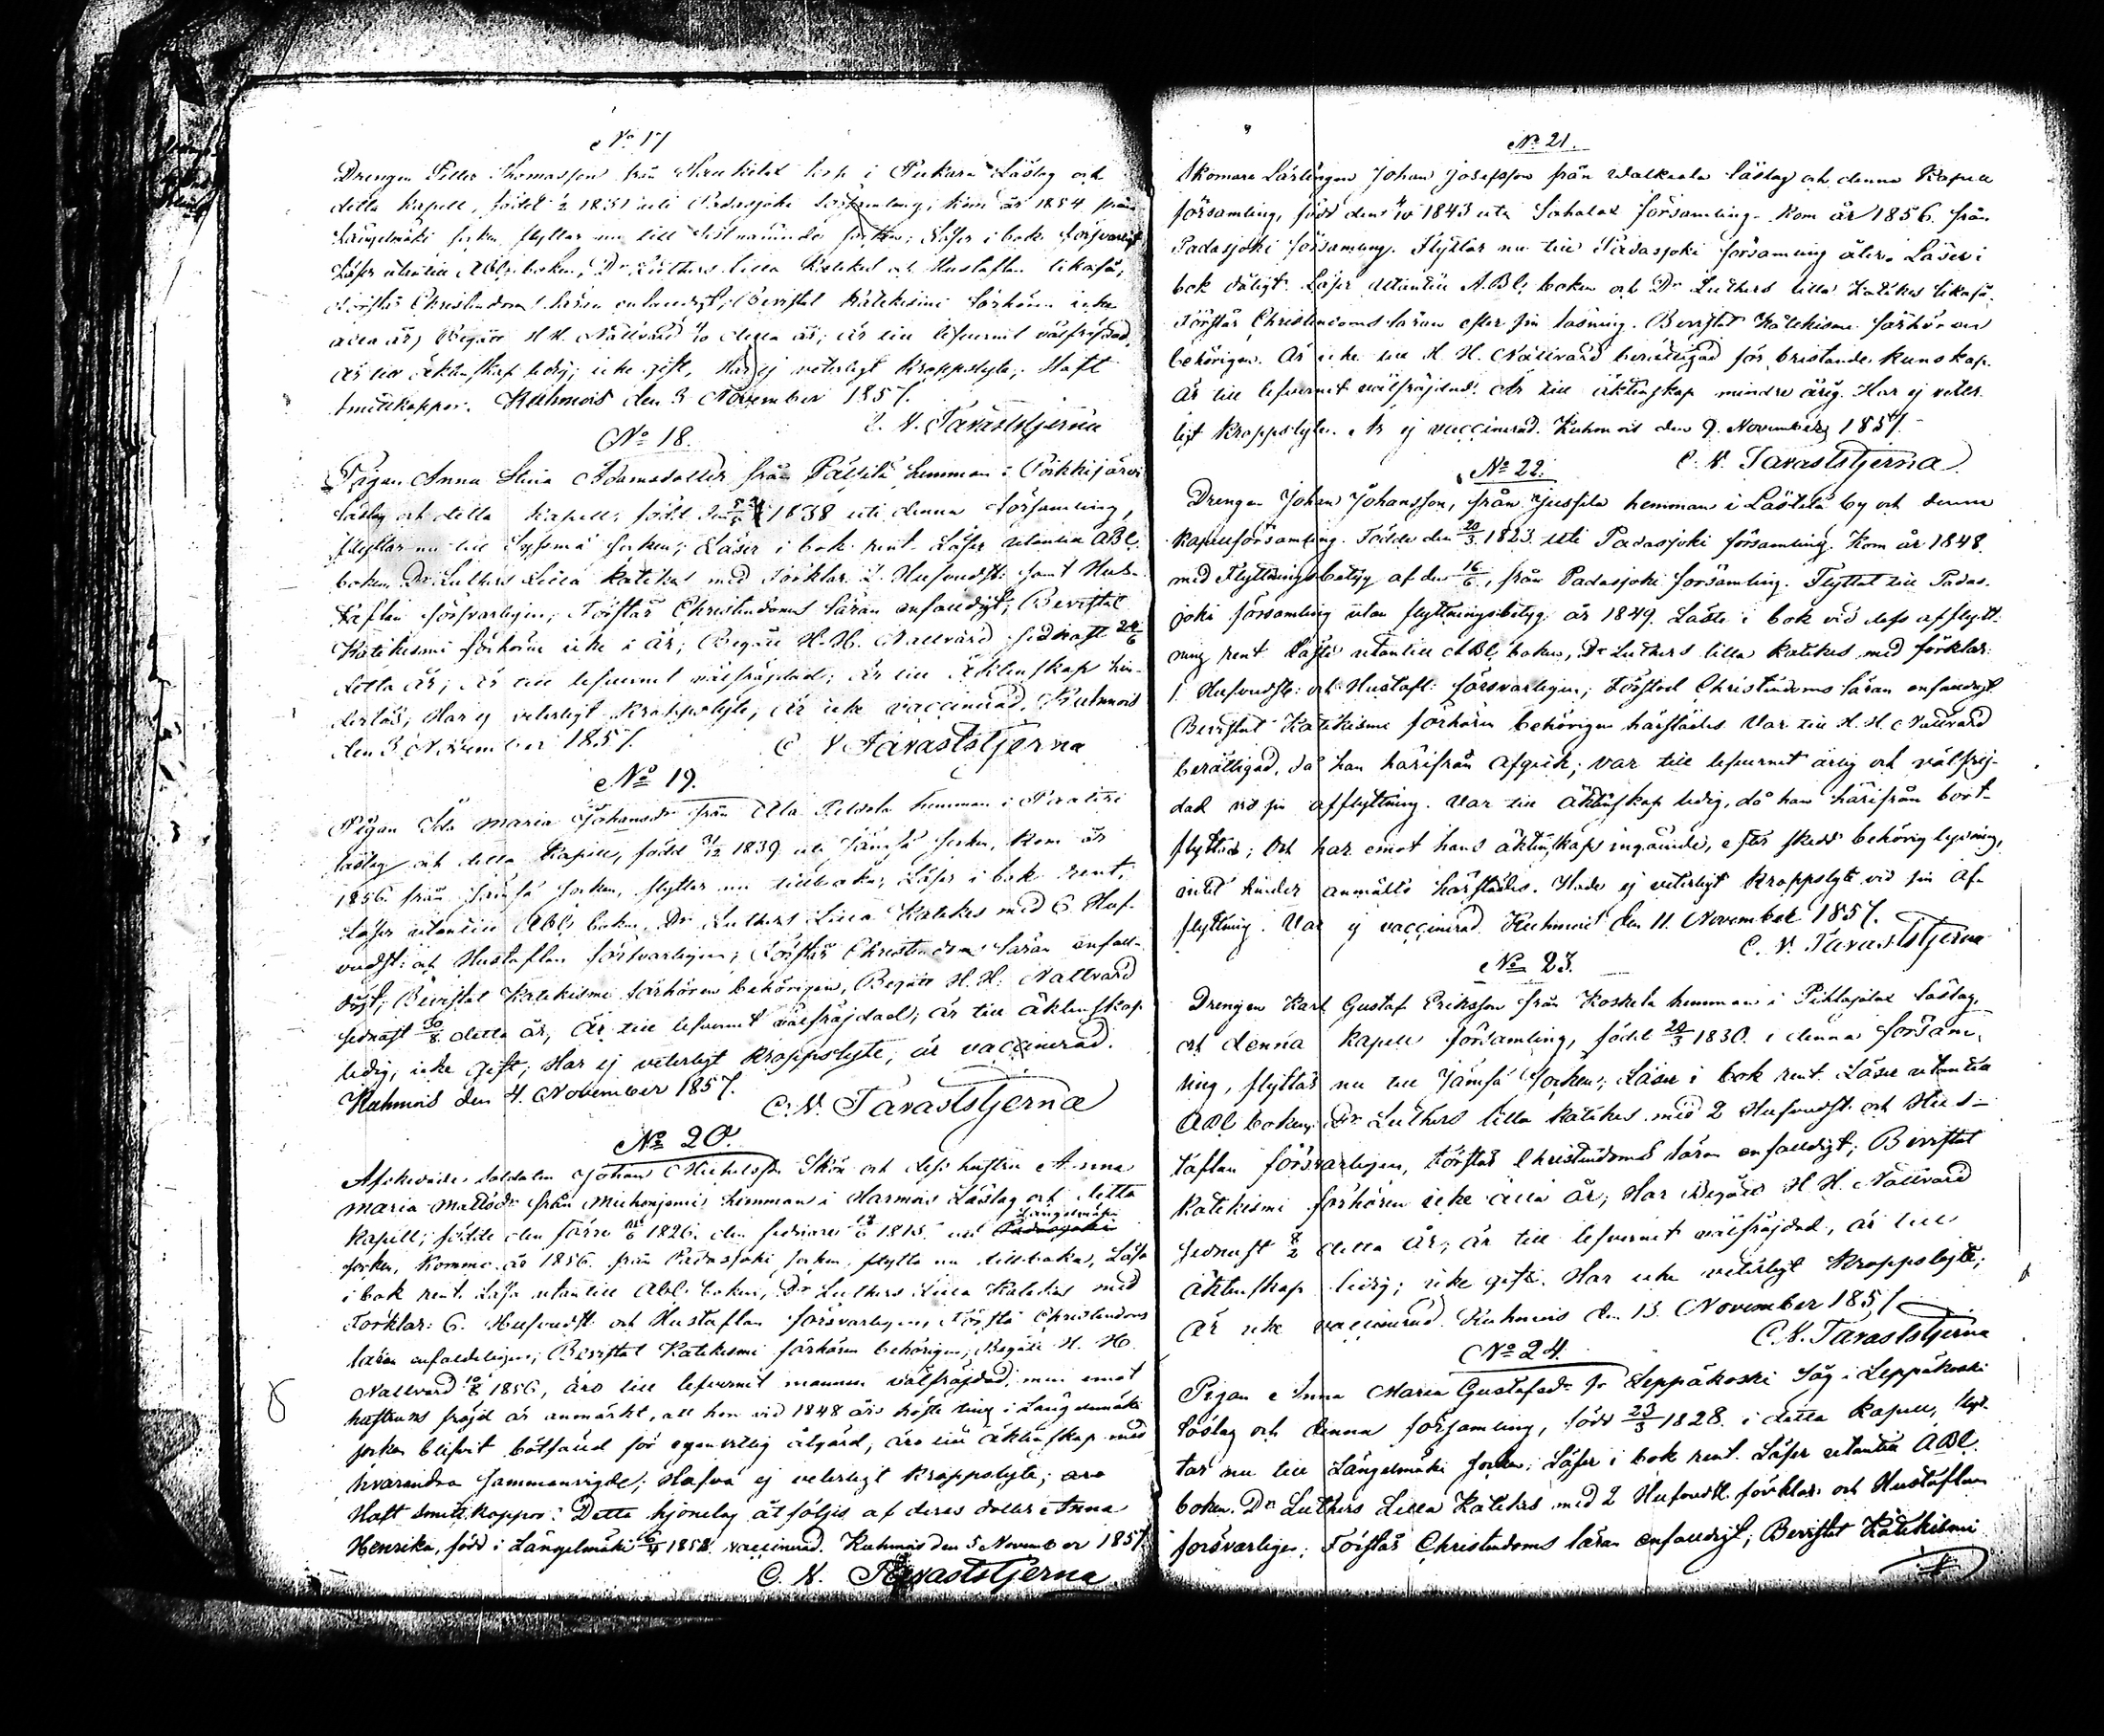 No 17
Drengen Petter Thomasson från hult i Pukara Låstag och
detta kapell, född 1831 uti Padasjoki församling, kom år 1854 från
Längelmäki socken flyttar nu till socken; Läser i bok försvarligt
Läser utantill ABC boken, Dr Luthers Lilla Katekes och Hustaflan likaså;
Förstår Christendoms läran enfaldigt; Bevistat Katekismi förhören icke
alla år, Begått H. H. Nattvard detta år; Är till lefvernet välfräjdad,
är till äktenskap ledig; icke gift, Har ej veterligt kroppslyte; Haft
smittkoppor. Kuhmois den 3 November 1857.
C. N. Tavaststjerna
No 18.
Pigan Anna Stina Adamsdotter från hemman i Poikkijärvi
Låstag och detta Kapell, född den 1838 uti denna församling,
flyttar nu till Sysmä socken; Läser i bok rent. Läser utantill ABC.
boken Dr Luthers Lilla Katekes med Förklar. 2. Hufvudst: samt Hus-
taflan försvarligen, Förstår Christendoms läran enfaldigt; Bevistat
Katekismi förhören icke i år; Begått H. H. Nattvard sednast 24/6
detta år; är till lefvernet välfräjdad; är till äktenskap hin-
derlös, Har ej veterligt kroppslyte, är icke vaccinerad. Kuhmois
den 3 November 1857.
C N Tavaststjerna
No 19.
Pigan Ida Maria Johansdr från Ala Peldola hemman i
Låstag och detta Kapell, född 1839 uti Jämsä socken, Kom år
1856 från Jämsä socken, flyttar nu tillbaka; Läser i bok rent,
Läser utantill ABC boken, Dr Luthers Lilla Katekes med 6. Huf-
vudst: och Hustaflan försvarligen; Förstår Christendoms läran enfal-
digt; Bevistat Katekismi förhören behörigen, Begått H. H. Nattvard
sednast 30/8 detta år, Är till lefvernet välfräjdad; är till äktenskap
ledig, icke gift; Har ej veterligt kroppslyte, är vaccinerad.
Kuhmois den 4. November 1857.
C. N. Tavaststjerna
No 20.
Afskedade soldaten Johan Michelsson Skön och dess hustru Anna
Maria Mattsdr från hemman i Harmois Låstag och detta
Kapell; födde den förre 1826. den sednare 1815 uti Padasjoki Längelmäki
socken, Komne år 1856. från Padasjoki socken, flytta nu tillbaka, Läsa
i bok rent. Läsa utantill ABC boken, Dr Luthers Lilla Katekes med
Förklar: 6. Hufvudst: och Hustaflan försvarligen, Förstå Christendoms
läran enfaldeligen; Bevistat Katekismi förhören behörigen, Begått H. H.
Nattvard 1856, äro till lefvernet mannen välfräjdad, men emot
hustruns fräjd är anmärkt, att hon vid 1848 års höste ting i Längelmäki
socken blifvit bötfäld för egenvillig åtgärd, äro till äktenskap med
hvarandra sammanvigde; Hafva ej veterligt kroppslyte; äro
Haft smittkoppor. Detta hjonelag åtföljes af deras dotter Anna
Henrika, född i Längelmäki 1854. vaccinerad. Kuhmois den 5 November 1857.
C. N. Tavaststjerna.
No 21.
Skomare Lärlingen Johan Josefsson från Walkeala Låstag och denna Kapell
församling, född den 1843 uti Sahalax församling. Kom år 1856. från
Padasjoki församling. Flyttar nu till Padasjoki församling åter. Läser i
bok dåligt. Läser utantill A.B.C. boken och Dr Luthers lilla Katekes likaså.
Förstår Christendoms läran efter sin läsning. Bevistat Katekismi förhören
behörigen. Är icke till H. H. Nattvard berättigad för bristande kunskap.
Är till lefvernet välfräjdad. Är till äktenskap mindre årig. Har ej veter-
ligt kroppslyte. Är ej vaccinerad. Kuhmois den 9. November 1857.
C. N. Tavaststjerna
No 22.
Drengen Johan Johansson, från Jussila hemman i Lästilä by och denna
Kapellförsamling. Född den 20/3 1823. uti Padasjoki församling. Kom år 1848.
med Flyttningsbetyg af den 16/6, från Padasjoki församling. Flyttat till Padas-
joki församling utan flyttningsbetyg år 1849. Läste i bok vid dess afflytt-
ning rent. Läste utantill ABC boken, Dr Luthers lilla Katekes med förklar:
1 Hufvudst: och Hustafl: försvarligen; Förstod Christendoms läran enfaldigt.
Bevistat Katekismi förhören behörigen härstädes. Var till H. H. Nattvard
berättigad, då han härifrån afgick; var till lefvernet ärlig och välfrej-
dad vid sin afflyttning. Var till äktenskap ledig, då han härifrån bort-
flyttade; Och har emot hans äktenskaps ingående, efter skedd behörig lysning,
intet hinder anmälts härstädes. Hade ej veterligt kroppslyte vid sin af-
flyttning. Var ej vaccinerad. Kuhmois den 11. November 1857.
C. N. Tavaststjerna
No 23.
Drengen Karl Gustaf Eriksson från Koskela hemman i Pihlajalax Låstag,
och denna Kapell församling, född 20/3 1830. i denna försam-
ling, flyttar nu till Jämsä socken; Läser i bok rent. Läser utantill
ABC boken, Dr Luthers lilla Katekes med 2 Hufvudst. och Hus-
taflan försvarligen, Förstår Christendoms läran enfaldigt; Bevistat
Katekismi förhören icke alla år, Har Begått H. H. Nattvard
sednast 8/2 detta år; är till lefvernet välfräjdad, är till
äktenskap ledig; icke gift. Har icke veterligt kroppslyte;
Är icke vaccinerad. Kuhmois d. 13. November 1857
C. N. Tavaststjerna
No 24.
Pigan Anna Maria Gustafsdr fr Leppäkoski Såg i Leppäkoski
Låstag och denna församling, född 23/3 1828. i detta Kapell, flyt-
tar nu till Längelmäki socken; Läser i bok rent. Läser utantill ABC.
boken. Dr Luthers Lilla Katekes med 2 Hufvudst. förklar. och Hustaflan
försvarligen; Förstår Christendoms läran enfaldigt; Bevistat Katekismi